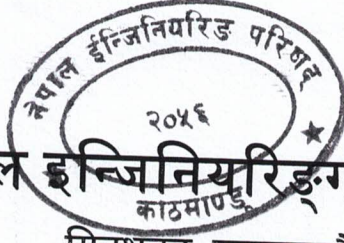 नेपाल ईन्जिनियरिङ परिषद्
२०५६
ल इन्जिनियरिङ्ग
काठमाण्डू